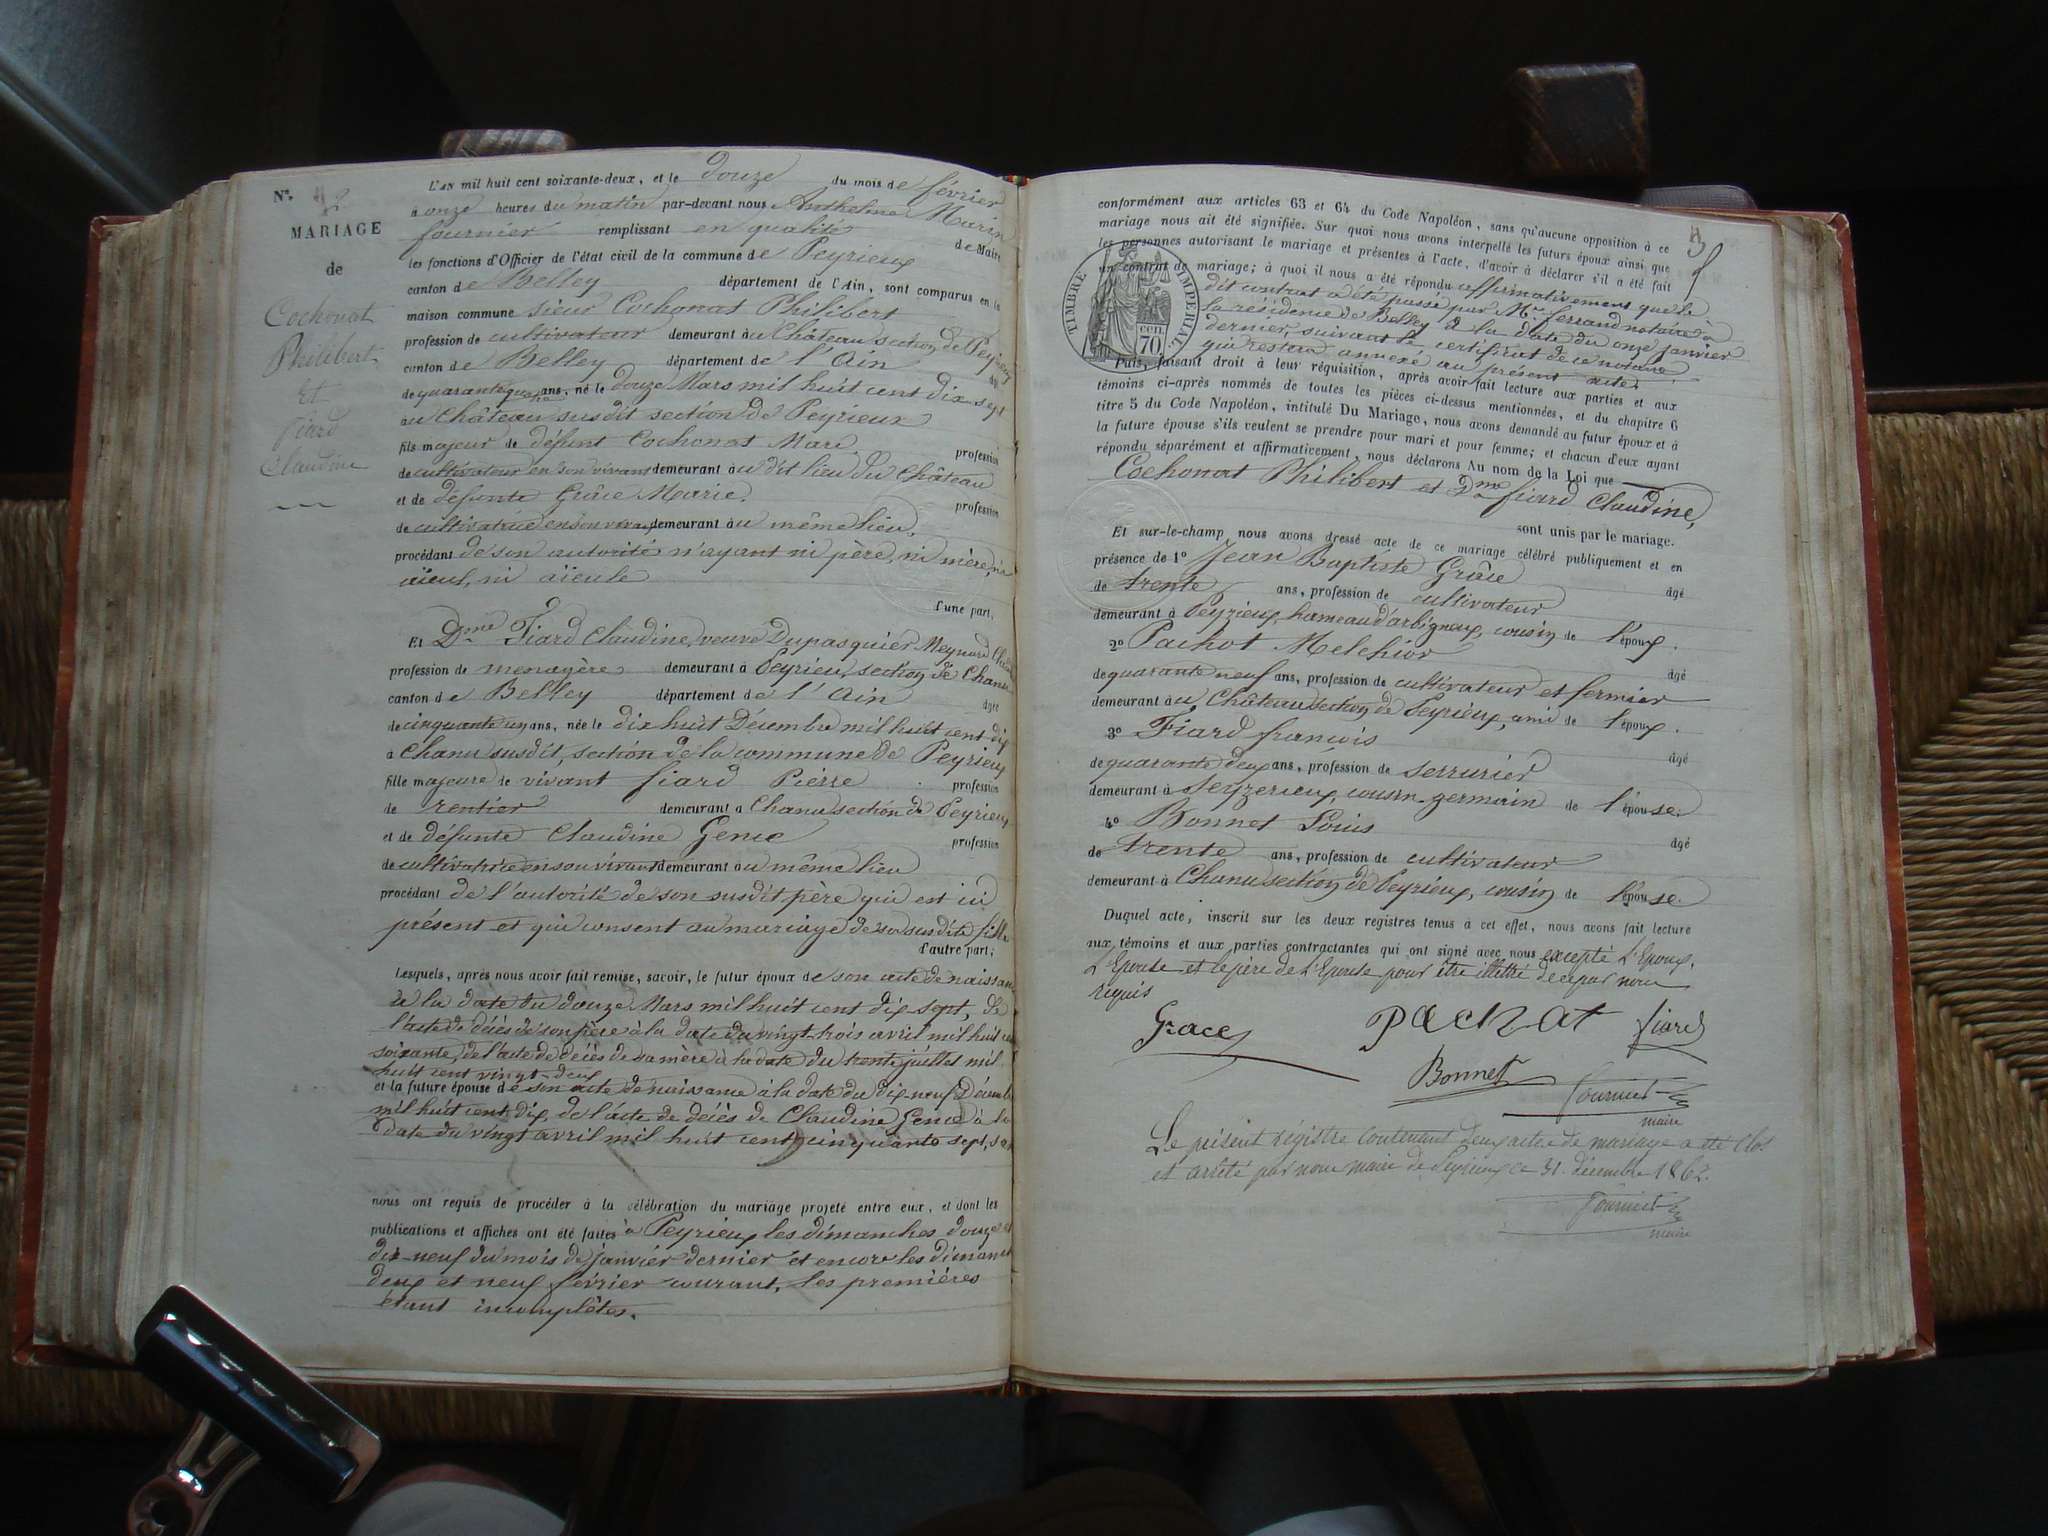 N.º 2
MARIAGE
de
Cochonat
Philibert
Et
Fiard
Claudine
L'AN mil huit cent soixante-deux, et le douze du mois de février
à onze heures du matin par-devant nous Anthelme Marin
fournier remplissant en qualité de Maire
les fonctions d'Officier de l'état civil de la commune de Peyrieux
canton de Belley département de l'Ain, sont comparus en la
maison commune sieur Cochonat Philibert
profession de cultivateur demeurant au Château section de Peyrieux
canton de Belley département de l'Ain
de quarante quatre ans, né le douze Mars mil huit cent dix sept
au Château susdit section de Peyrieux
fils majeur de défunt Cochonat Marc profession
de cultivateur en son vivant demeurant au dit lieu du Château
et de défunte Grâce Marie. profession
de cultivatrice en son vivant demeurant au même lieu,
procédant de son autorité n'ayant ni père, ni mère, ni
aïeul, ni aïeule
d'une part,
Et Dme Fiard Claudine, veuve Dupasquier Meynard
profession de menagère demeurant à Peyrieu, section de Chanu
canton de Belley département de l'Ain âgée
de cinquante un ans, née le dix huit Décembre mil huit cent dix
à Chanu susdit, section de la commune de Peyrieux
fille majeure de vivant fiard Pierre profession
de rentier demeurant à Chanu section de Peyrieux
et de défunte Claudine Genie profession
de cultivatrice en son vivant demeurant au même lieu
procédant de l'autorité de son susdit père qui est ici
présent et qui consent au mariage de sa susdite fille
d'autre part;
Lesquels, après nous avoir fait remise, savoir, le futur époux de son acte de naissance
à la date du douze Mars mil huit cent dix sept, de
l'acte de décès de son père à la date du vingt-trois avril mil huit cent
soixante, de l'acte de décès de sa mère à la date du trente juillet mil
huit cent vingt-deux
et la future épouse de son acte de naissance à la date du dix neuf Décembre
mil huit cent dix, de l'acte de décès de Claudine Genie à la
date du vingt avril mil huit cent cinquante sept,
nous ont requis de procéder à la célébration du mariage projeté entre eux, et dont les
publications et affiches ont été faites à Peyrieux les dimanches douze et
dix-neuf du mois de janvier dernier et encore les dimanches
deux et neuf février courant, les premières
étant incomplètes.
conformément aux articles 63 et 64 du Code Napoléon, sans qu'aucune opposition à ce
mariage nous ait été signifiée. Sur quoi nous avons interpellé les futurs époux ainsi que
les personnes autorisant le mariage et présentes à l'acte, d'avoir à déclarer s'il a été fait
un contrat de mariage; à quoi il nous a été répondu affirmativement que le
dit contrat a été passé par Mr ferrand notaire à
la résidence de Belley à la date du onze janvier
dernier, suivant le certificat de ce notaire
qui restera annexé au présent acte.
TIMBRE IMPERIAL
70 cen.
Puis, faisant droit à leur réquisition, après avoir fait lecture aux parties et aux
témoins ci-après nommés de toutes les pièces ci-dessus mentionnées, et du chapitre 6
titre 5 du Code Napoléon, intitulé Du Mariage, nous avons demandé au futur époux et à
la future épouse s'ils veulent se prendre pour mari et pour femme; et chacun d'eux ayant
répondu séparément et affirmativement, nous déclarons Au nom de la Loi que
Cochonat Philibert et Dme fiard Claudine,
sont unis par le mariage.
Et sur-le-champ nous avons dressé acte de ce mariage célébré publiquement et en
présence de 1º Jean Baptiste Grâce âgé
de trente ans, profession de cultivateur
demeurant à Peyzieux, hameau d'arbigneux, cousin de l'époux.
2º Pachot Melchior âgé
de quarante neuf ans, profession de cultivateur et fermier
demeurant au Château section de Peyrieux, ami de l'époux.
3º Fiard francois âgé
de quarante deux ans, profession de serrurier
demeurant à Seyzerieux, cousin germain de l'épouse.
4º Bonnet Louis âgé
de trente ans, profession de cultivateur
demeurant à Chanu section de Peyrieux, cousin de l'épouse.
Duquel acte, inscrit sur les deux registres tenus à cet effet, nous avons fait lecture
aux témoins et aux parties contractantes qui ont signé avec nous excepté l'Epoux,
L'Epouse et le père de l'Epouse pour être illettré de ce par nous
requis
Grace PACHAT fiard
Bonnet fournier
maire
Le présent régistre contenant deux actes de mariage a été Clos
et arrêté par nous maire de Peyrieux ce 31 décembre 1862.
Fournier
maire